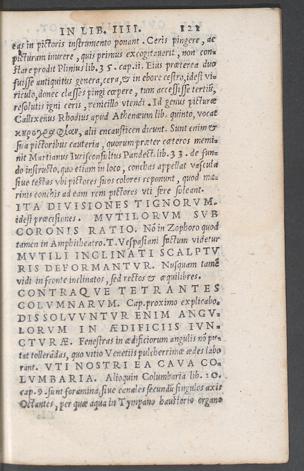 IN LIB. IIII. 121
eas in pictoris instrumento ponant. Ceris pingere, ac
picturam inurere, quis primus excogitauerit, non con-
stare prodit Plinius lib. 35. cap. 11. Eius præterea duo
fuisse antiquitus genera, cera, & in ebore cestro, idest vi-
riculo, donec classes pingi cœpere, tum accessisse tertiũ,
resolutis igni ceris, penicillo vtendi. Id genus picturæ
Callixenus Rhodius apud Athenæum lib. quinto, vocat
alii encausticen dicunt. Sunt enim &
sua pictoribus cauteria, quorum præter cæteros memi-
nit Martianus Iurisconsultus Pandect. lib. 33. de fun-
do instructo, quo etiam in loco, conchas appellat vascula
siue testas vbi pictores suos colores reponunt, quod ma-
rinis conchis ad eam rem pictores vti fere soleant.
ITA DIVISIONES TIGNORVM.
idest præcisiones. MVTILORVM SVB
CORONIS RATIO. Nõ in Zophoro quod
tamen in Amphitheatro. T. Vespasiani factum videtur
MVTILI INCLINATI SCALPTV
RIS DEFORMANTVR. Nusquam tamẽ
vidi in fronte inclinatos, sed rectos & æquilibres.
CONTRAQVE TETRANTES
COLVMNARVM. Cap. proximo explicabo.
DISSOLVVNTVR ENIM ANGV-
LORVM IN ÆDIFICIIS IVN-
CTVRÆ. Fenestras in ædificiorum angulis nõ pu-
tat tollerãdas, quo vitio Venetiis pulcherrimæ ædes labo
rant. VTI NOSTRI EA CAVA CO-
LVMBARIA. Alioquin Columbaria lib. 10.
cap. 9. sunt foramina, siue canales secundũ singulos axis
Octantes, per quæ aqua in Tympano haustorio organo